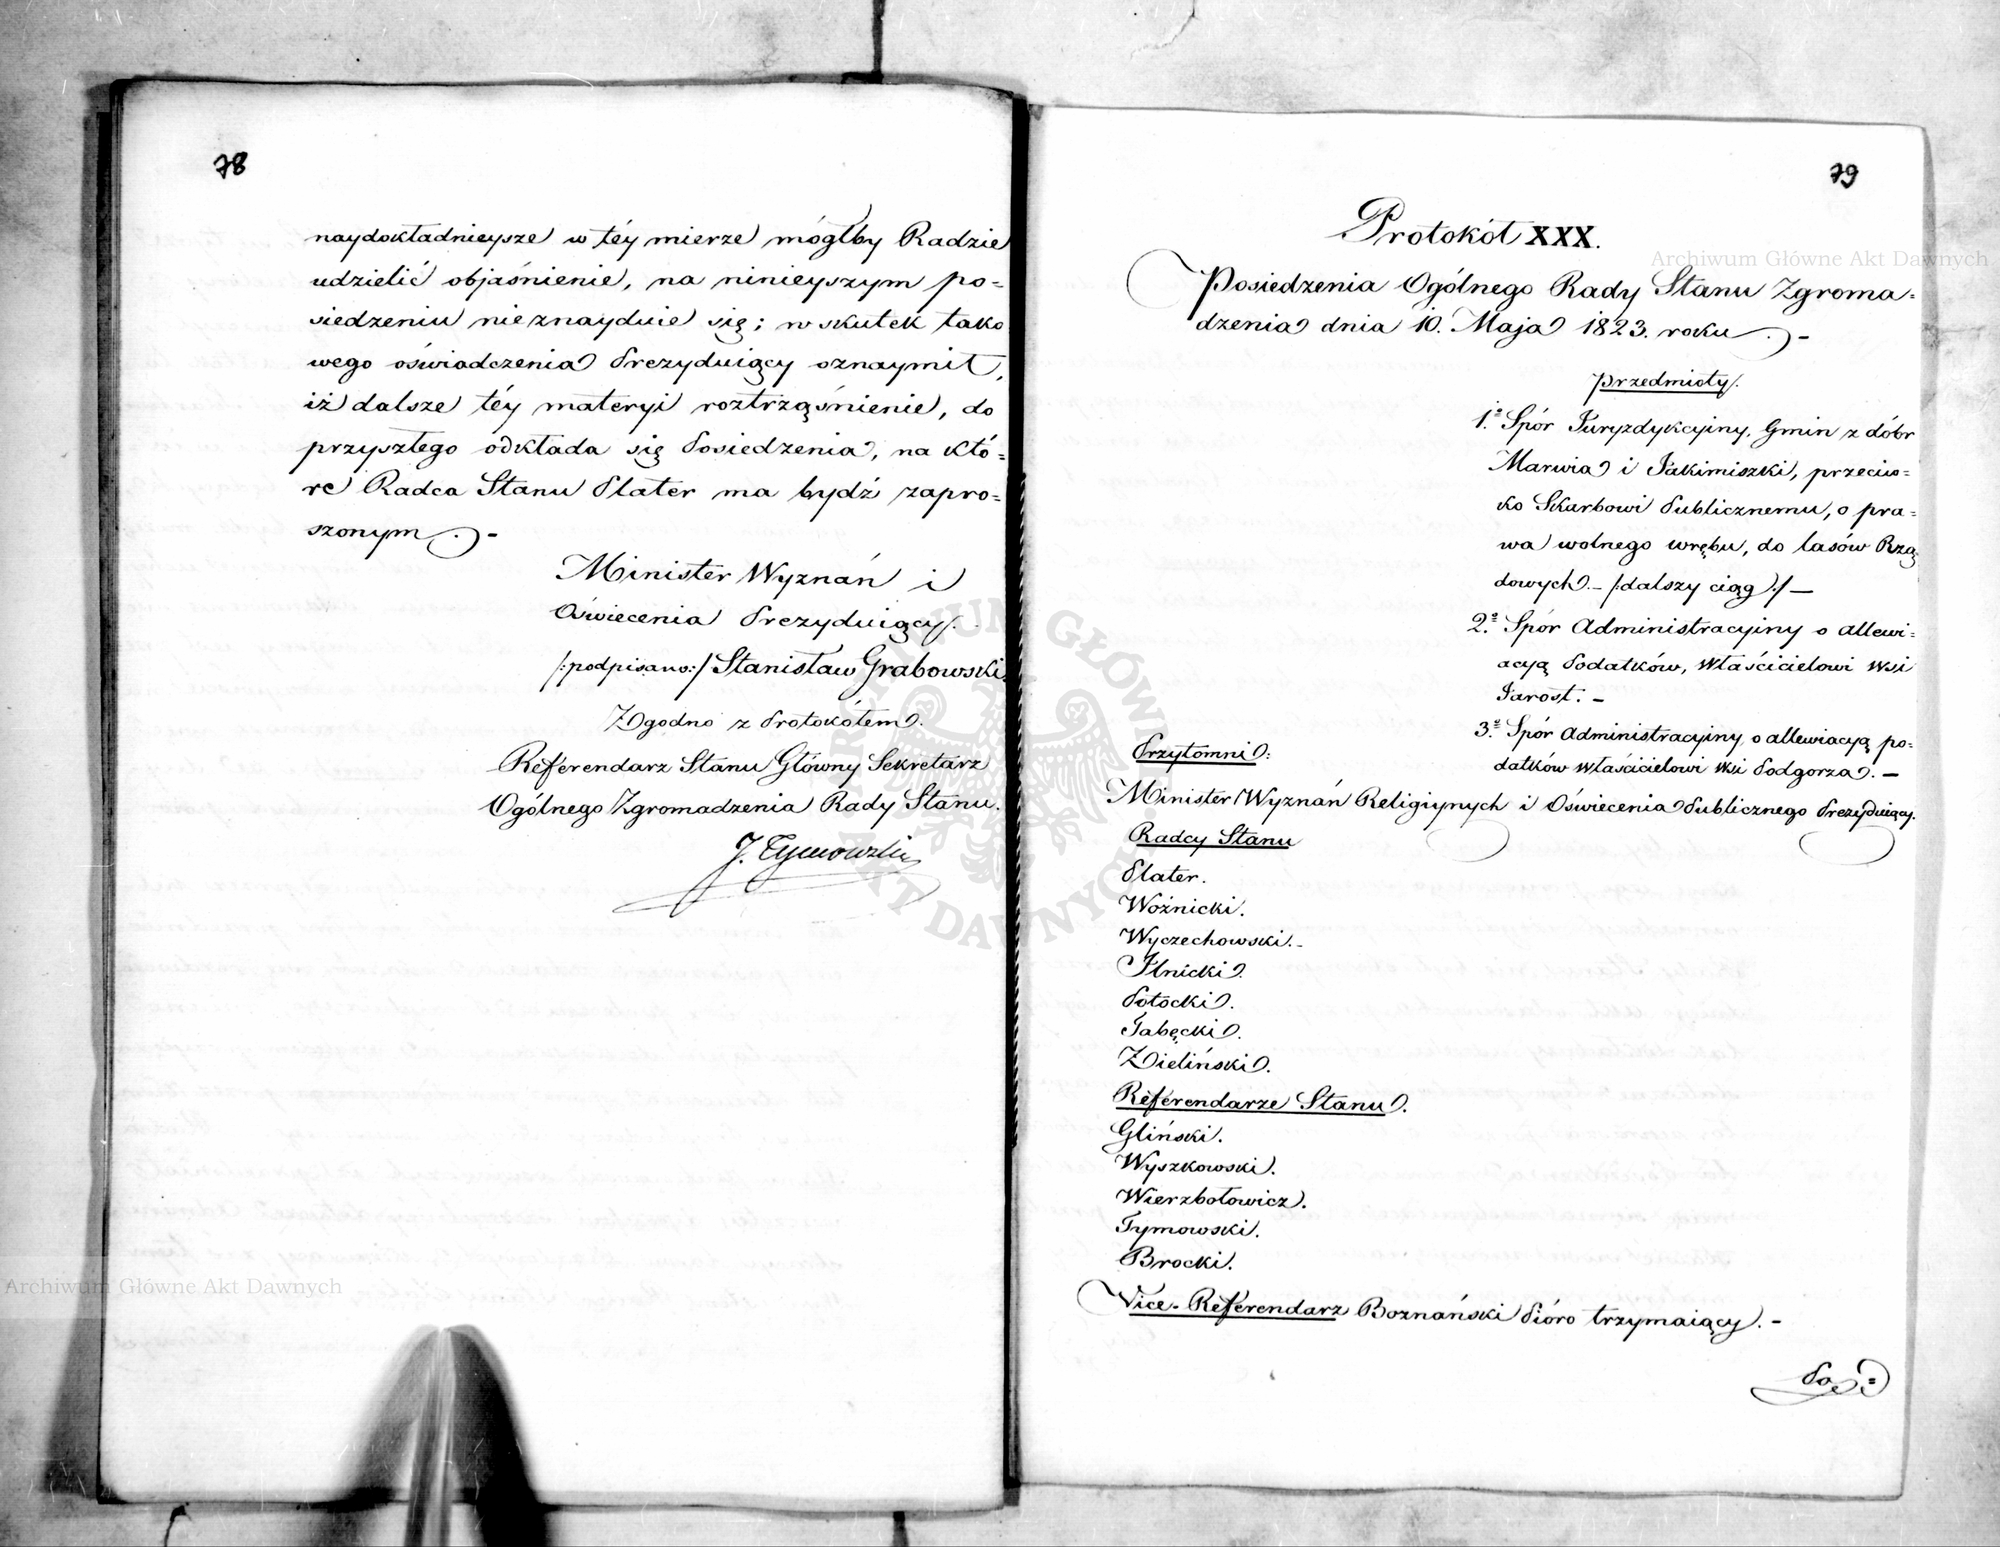 78
naydokładnieysze w téy mierze mógłby Radzie
udzielić objaśnienie, na ninieyszym po=
siedzeniu nieznayduie się; w skutek tako
wego oświadczenia Prezyduiący oznaymił,
iż dalsze téy materyi roztrząśnienie, do
przyszłego odkłada się Posiedzenia, na któ=
re Radca Stanu Plater ma bydź zapro=
szonym. -
Minister Wyznań i
Oświecenia Prezyduiący.
/:podpisano:/ Stanisław Grabowski
Zgodno z Protokółem.
Referendarz Stanu Główny Sekretarz
Ogólnego Zgromadzenia Rady Stanu.
J. Tymowski
79
Protokół XXX.
Posiedzenia Ogólnego Rady Stanu Zgroma=
dzenia dnia 10. Maja 1823. roku. -
Przedmioty.
1.º Spór Juryzdykcyiny, Gmin z dóbr
Marwia i Jakimiszki, przeciw=
ko Skarbowi Publicznemu, o pra=
wa wolnego wrębu, do lasów Rzą
dowych. - /:dalszy ciąg:/ —
2.º Spór Administracyiny o allewi=
acyą Podatków, Właścicielowi Wsi
Jarost. -
3.º Spór Administracyiny, o allewiacyą po=
datków Właścicielowi Wsi Podgorza. —
Przytomni:
Minister Wyznań Religiynych i Oświecenia Publicznego Prezyduiący.
Radcy Stanu
Plater.
Woźnicki.
Wyczechowski. -
Ilnicki.
Potocki.
Tabęcki.
Zieliński.
Referendarze Stanu.
Gliński.
Wyszkowski.
Wierzbołowicz.
Tymowski.
Brocki.
Vice-Referendarz Boznański Pióro trzymaiący. -
Po=
Archiwum Główne Akt Dawnych
Archiwum Główne Akt Dawnych
ARCHIWUM GŁÓWNE AKT DAWNYCH